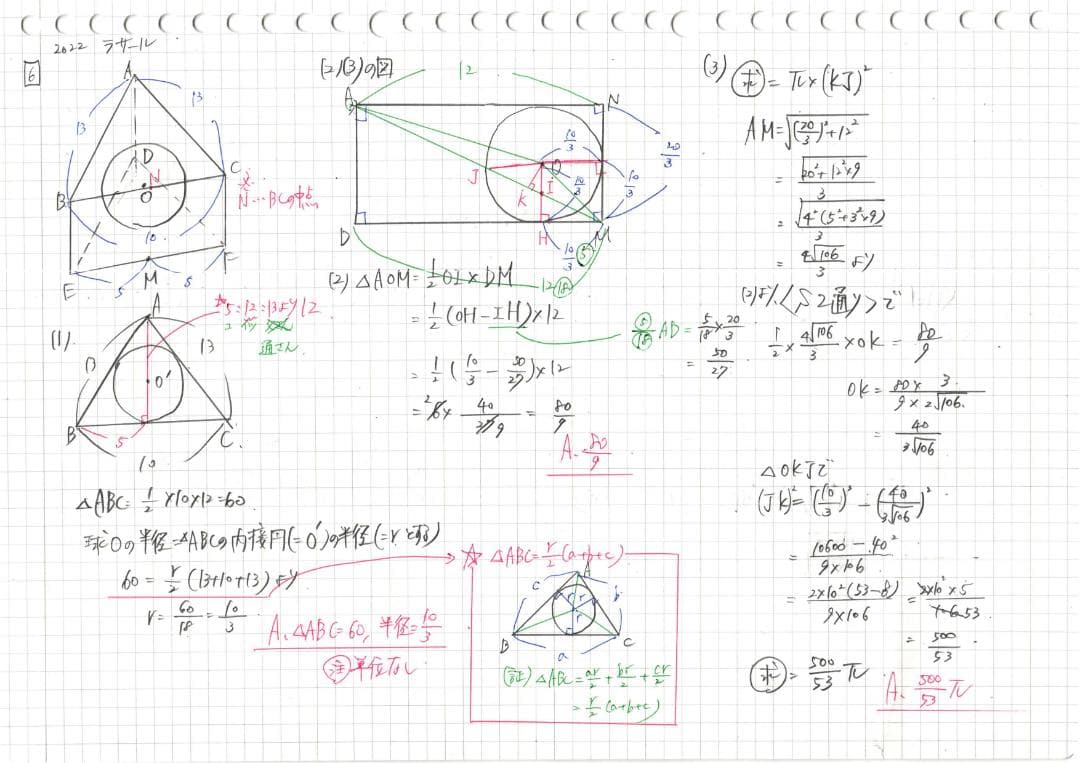 2022 ラサール
6
A
13
13
B
D
N
O
C
10
※
N…BCの中点
E
5
M
5
F
(1)
A
5:12:13より12
通さん
13
13
O'
B
5
C
10
△ABC=1/2×10×12=60
球Oの半径=△ABCの内接円(=O')の半径(=rとする)
60=r/2(13+10+13)より
r=60/18=10/3
A. △ABC=60, 半径=10/3
注 単位なし
(2)(3)の図
12
A
N
10/3
20/3
J
O
10/3
10/3
K
I
D
H
M
10/3
5
12 18
(2) △AOM=1/2 OI×DM
=1/2(OH-IH)×12
5/18 AD=5/18×20/3
=50/27
=1/2(10/3-50/27)×12
=6×40/27=80/9
2
9
A. 80/9
☆ △ABC=r/2(a+b+c)
A
c
b
r
r
r
B
a
C
(証) △ABC=ar/2+br/2+cr/2
=r/2(a+b+c)
(3) 求=π×(KJ)²
AM=√((20/3)²+12²)
=√(20²+12²×9)/3
=√(4²(5²+3²×9))/3
=4√106/3 より
(2)より、〈S2通り〉で
1/2×4√106/3×OK=80/9
OK=80×3/9×2√106
=40/3√106
△OKJで
(JK)²=(10/3)²-(40/3√106)²
=10600-40²/9×106
=2×10²(53-8)/9×106=2×10²×5/106 53
=500/53
求=500/53 π
A. 500/53 π